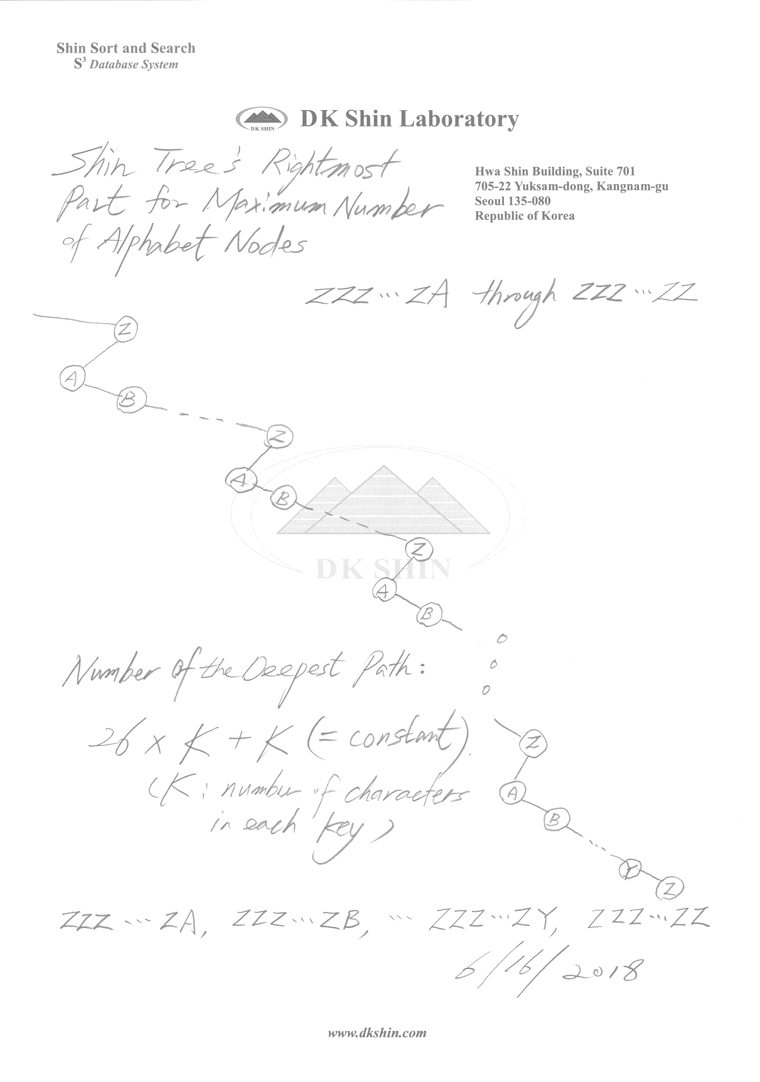 Shin Sort and Search
S³ Database System
DK SHIN
DK Shin Laboratory
Hwa Shin Building, Suite 701
705-22 Yuksam-dong, Kangnam-gu
Seoul 135-080
Republic of Korea
Shin Tree's Rightmost
Part for Maximum Number
of Alphabet Nodes
ZZZ ... ZA through ZZZ ... ZZ
Z
A
B
Z
A
B
Z
DK SHIN
A
B
Number of the Deepest Path:
26 x K + K (= constant).
(K: number of characters
in each key)
Z
A
B
Y
Z
ZZZ ... ZA, ZZZ ... ZB, ... ZZZ ... ZY, ZZZ ... ZZ
6/16/2018
www.dkshin.com